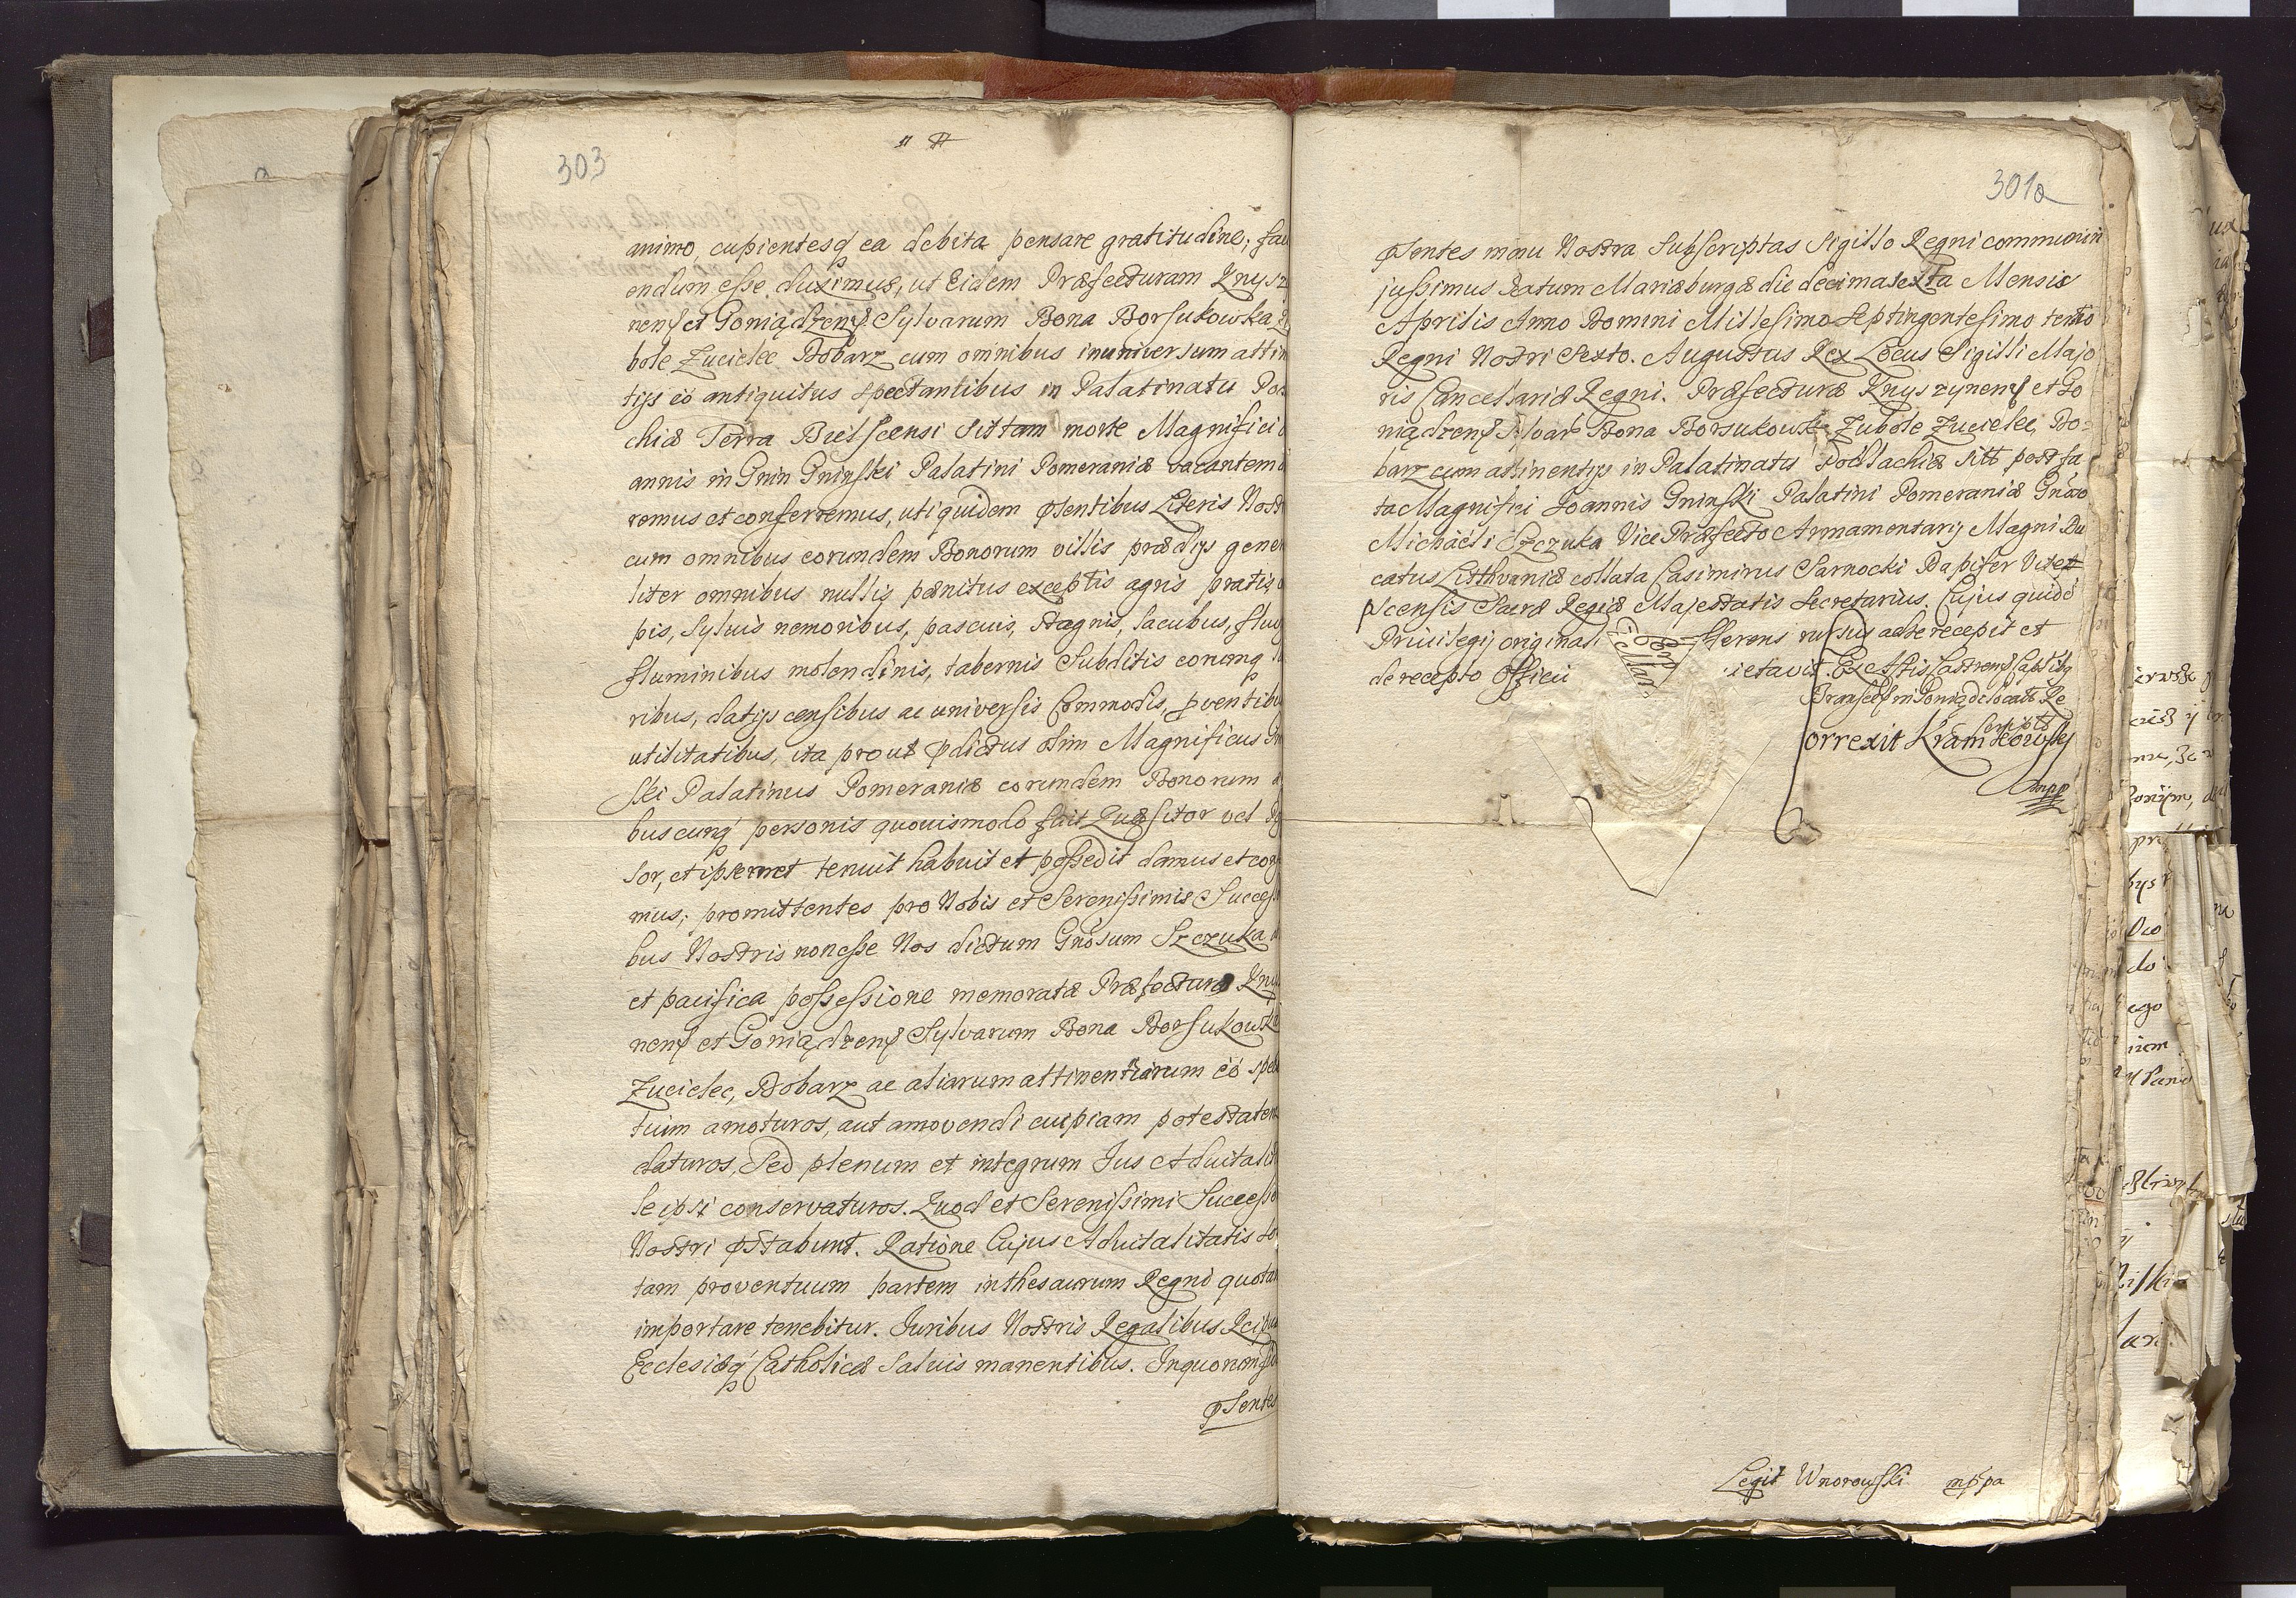 303
animo, cupientesq ea debita pensare gratitudine; fau
endum esse duximus, ut Eidem Præfecturam Knysz
nens et Goniądzens Sylvarum Bona Borsukowka Zu
bole Zucielec Dobarz cum omnibus in universum attin
tijs eò antiquitus spectantibus in Palatinatu Pod
chiæ Terra Bielscensi sittam morte Magnifici
annis in Gnin Gninski Palatini Pomeraniæ vacantem
remus et conferremus, uti quidem pſentibus Literis Nost
cum omnibus eorundem Bonorum villis prædijs gene
liter omnibus nullis pænitus exceptis agris pratis,
pis, Sylvis nemoribus, pascuis, stagnis, lacubus, fluv
fluminibus molendinis, tabernis Subditis eorumq
ribus, datijs censibus ac universis Commodis, pventibu
utilitatibus, ita prout pdictus olim Magnificus Gn
ski Palatinus Pomeraniæ eorundem Bonorum a
buscunq personis quovismodo fuit Quæsitor vel
sor, et ipsemet tenuit habuit et possedit damus et con
mus; promittentes pro Nobis et Serenissimis Success
bus Nostris non esse Nos dictum Gnosum Szczuka
et pacifica possessione memoratæ Præfecturæ Kny
nens et Goniądzens Sylvarum Bona Borsukowk
Zucielec, Dobarz ac aliarum attinentiarum eò spe
tium amoturos, aut amovendi cuipiam potestatem
daturos, Sed plenum et integrum Jus Advitalit
se ipsi conservaturos. Quod et Serenissimi Successo
Nostri pstabunt. Ratione Cujus Advitalitatis
tam proventuum partem in thesaurum Regni quotan
importare tenebitur. Juribus Nostris Regalibus Reipu
Ecclesiæq Catholicæ Salvis manentibus. In quorum
pſentes
301a
pſentes manu Nostra Subscriptas Sigillo Regni communiri
jussimus Datum Mariæburgæ die decima sexta Mensis
Aprilis Anno Domini Millesimo Septingentesimo tertio
Regni Nostri Sexto. Augustus Rex Locus Sigilli Majo
ris Cancellariæ Regni. Præfecturæ Knyszynens et Go
niądzens Sylvar Bona Borsukowk Zubole Zucielec, Do=
barz cum attinentijs in Palatinatu Podlachiæ sitt post fa
ta Magnifici Joannis Gninski Palatini Pomeraniæ Gnoso
Michaeli Szczuka Vice Præfecto Armamentarij Magni Du
catus Litthvaniæ collata Casimirus Sarnocki Dapifer Vite
pscensis Sacræ Regiæ Majestatis Secretarius. Cujus quidē
Privilegij original fferens rursus ad se recepit et
de recepto Officiū ietavit. Ex Actis Castrens Captlbq
Bransc in Goniądz locatt Re
scriptt
orrexit Kramkowsky
mpp
Legit Wnorowski mppa